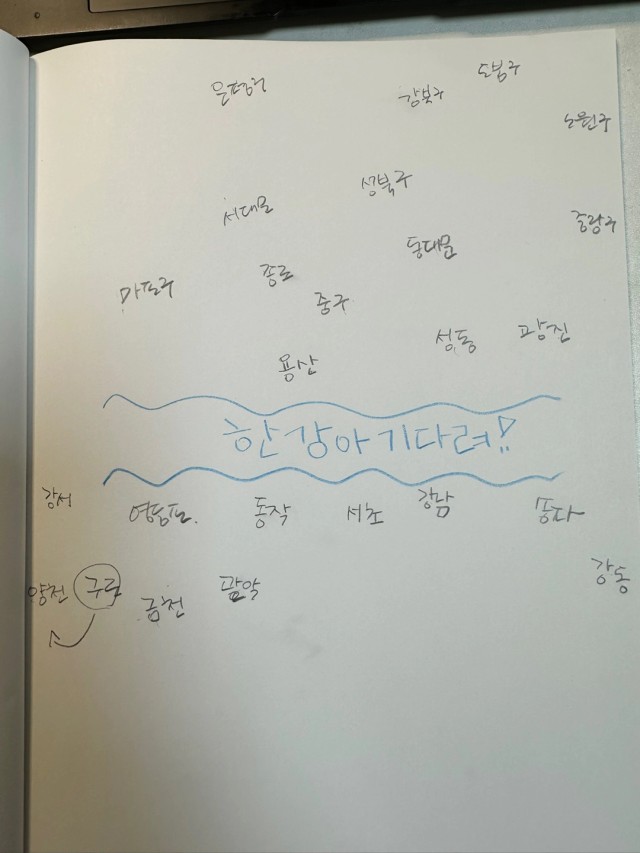 은평구
강북구
도봉구
노원구
서대문
성북구
중랑구
마포구
종로
중구
동대문
성동
광진
용산
한강아 기다려!!
강서
영등포.
동작
서초
강남
송파
양천
구로
금천
관악
강동